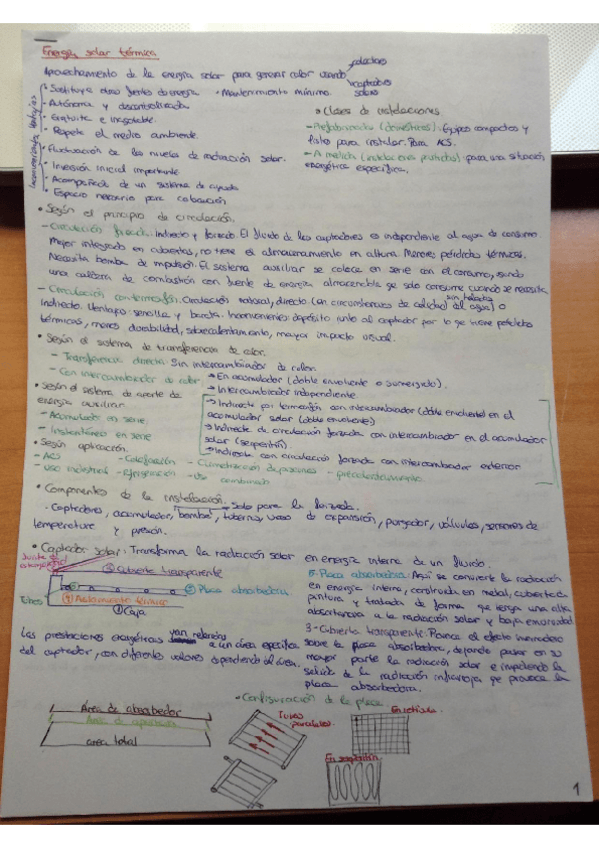 Energía solar térmica
Aprovechamiento de la energía solar para generar calor usando
colectores
captadores solares
Inconvenientes Ventajas
- Sustituye otras fuentes de energía
• Mantenimiento mínimo.
- Autónoma y descentralizada
- Gratuita e inagotable
- Respeta el medio ambiente.
• Fluctuación de los niveles de radiación solar.
• Inversión inicial importante
• Acompañada de un sistema de ayuda
• Espacio necesario para colocación
• Clases de instalaciones
- Prefabricadas (domésticos): Equipos compactos y
listos para instalar. Para ACS.
- A medida (instalaciones partidas): para una situación
energética específica.
• Según el principio de circulación.
- Circulación forzada: indirecto y forzado. El fluido de los captadores es independiente al agua de consumo
Mejor integrado en cubiertas, no tiene el almacenamiento en altura. Menores pérdidas térmicas.
Necesita bomba de impulsión. El sistema auxiliar se coloca en serie con el consumo, siendo
una caldera de combustión con fuente de energía almacenable ya solo consume cuando se necesita
- Circulación con termosifón: Circulación natural, directo (en circunstancias de calidad al agua) o
sin heladas
indirecto. Ventaja: sencilla y barata. Inconvenientes: depósito junto al captador por lo que tiene pérdidas
térmicas, menos durabilidad, sobrecalentamiento, mayor impacto visual.
• Según el sistema de transferencia de calor.
- Transferencia directa: Sin intercambiador de calor.
- Con intercambiador de calor
→ En acumulador (doble envolvente o sumergido).
→ Intercambiador independiente
• Según el sistema de aporte de
energía auxiliar.
- Acumulador en serie.
- Instantáneo en serie
→ Indirecto por termosifón con intercambiador (doble envolvente) en el
acumulador solar (doble envolvente)
→ Indirecto de circulación forzada con intercambiador en el acumulador
solar (serpentín).
→ Indirecto con circulación forzada con intercambiador exterior
• Según aplicación.
- ACS - Calefacción - Climatización de piscinas - precalentamiento.
- Uso industrial - Refrigeración - Uso combinado
• Componentes de la instalación: Solo para la forzada.
- Captadores, acumulador, bomba, tuberías, vaso de expansión, purgador, válvulas, sensores de
temperatura y presión.
• Captador solar: Transforma la radiación solar en energía interna de un fluido.
Junta de
③ Cubierta transparente
⑤ Placa absorbedora
Tubos
④ Aislamiento térmico
① Caja
5- Placa absorbedora: Aquí se convierte la radiación
en energía interna, construida en metal, cubierta de
pintura y tratada de forma que tenga una alta
absortancia a la radiación solar y baja emisividad
3- Cubierta transparente: Provoca el efecto invernadero
sobre la placa absorbedora, dejando pasar en su
mayor parte la radiación solar e impidiendo la
salida de la radiación infrarroja que provoca la
placa absorbedora.
Las prestaciones energéticas van referidas a un área específica
del captador, con diferentes valores dependiendo del área.
• Configuración de la placa
Área de absorbedor
Área de apertura
area total
Tubos
paralelos
En retícula
En serpentín
1